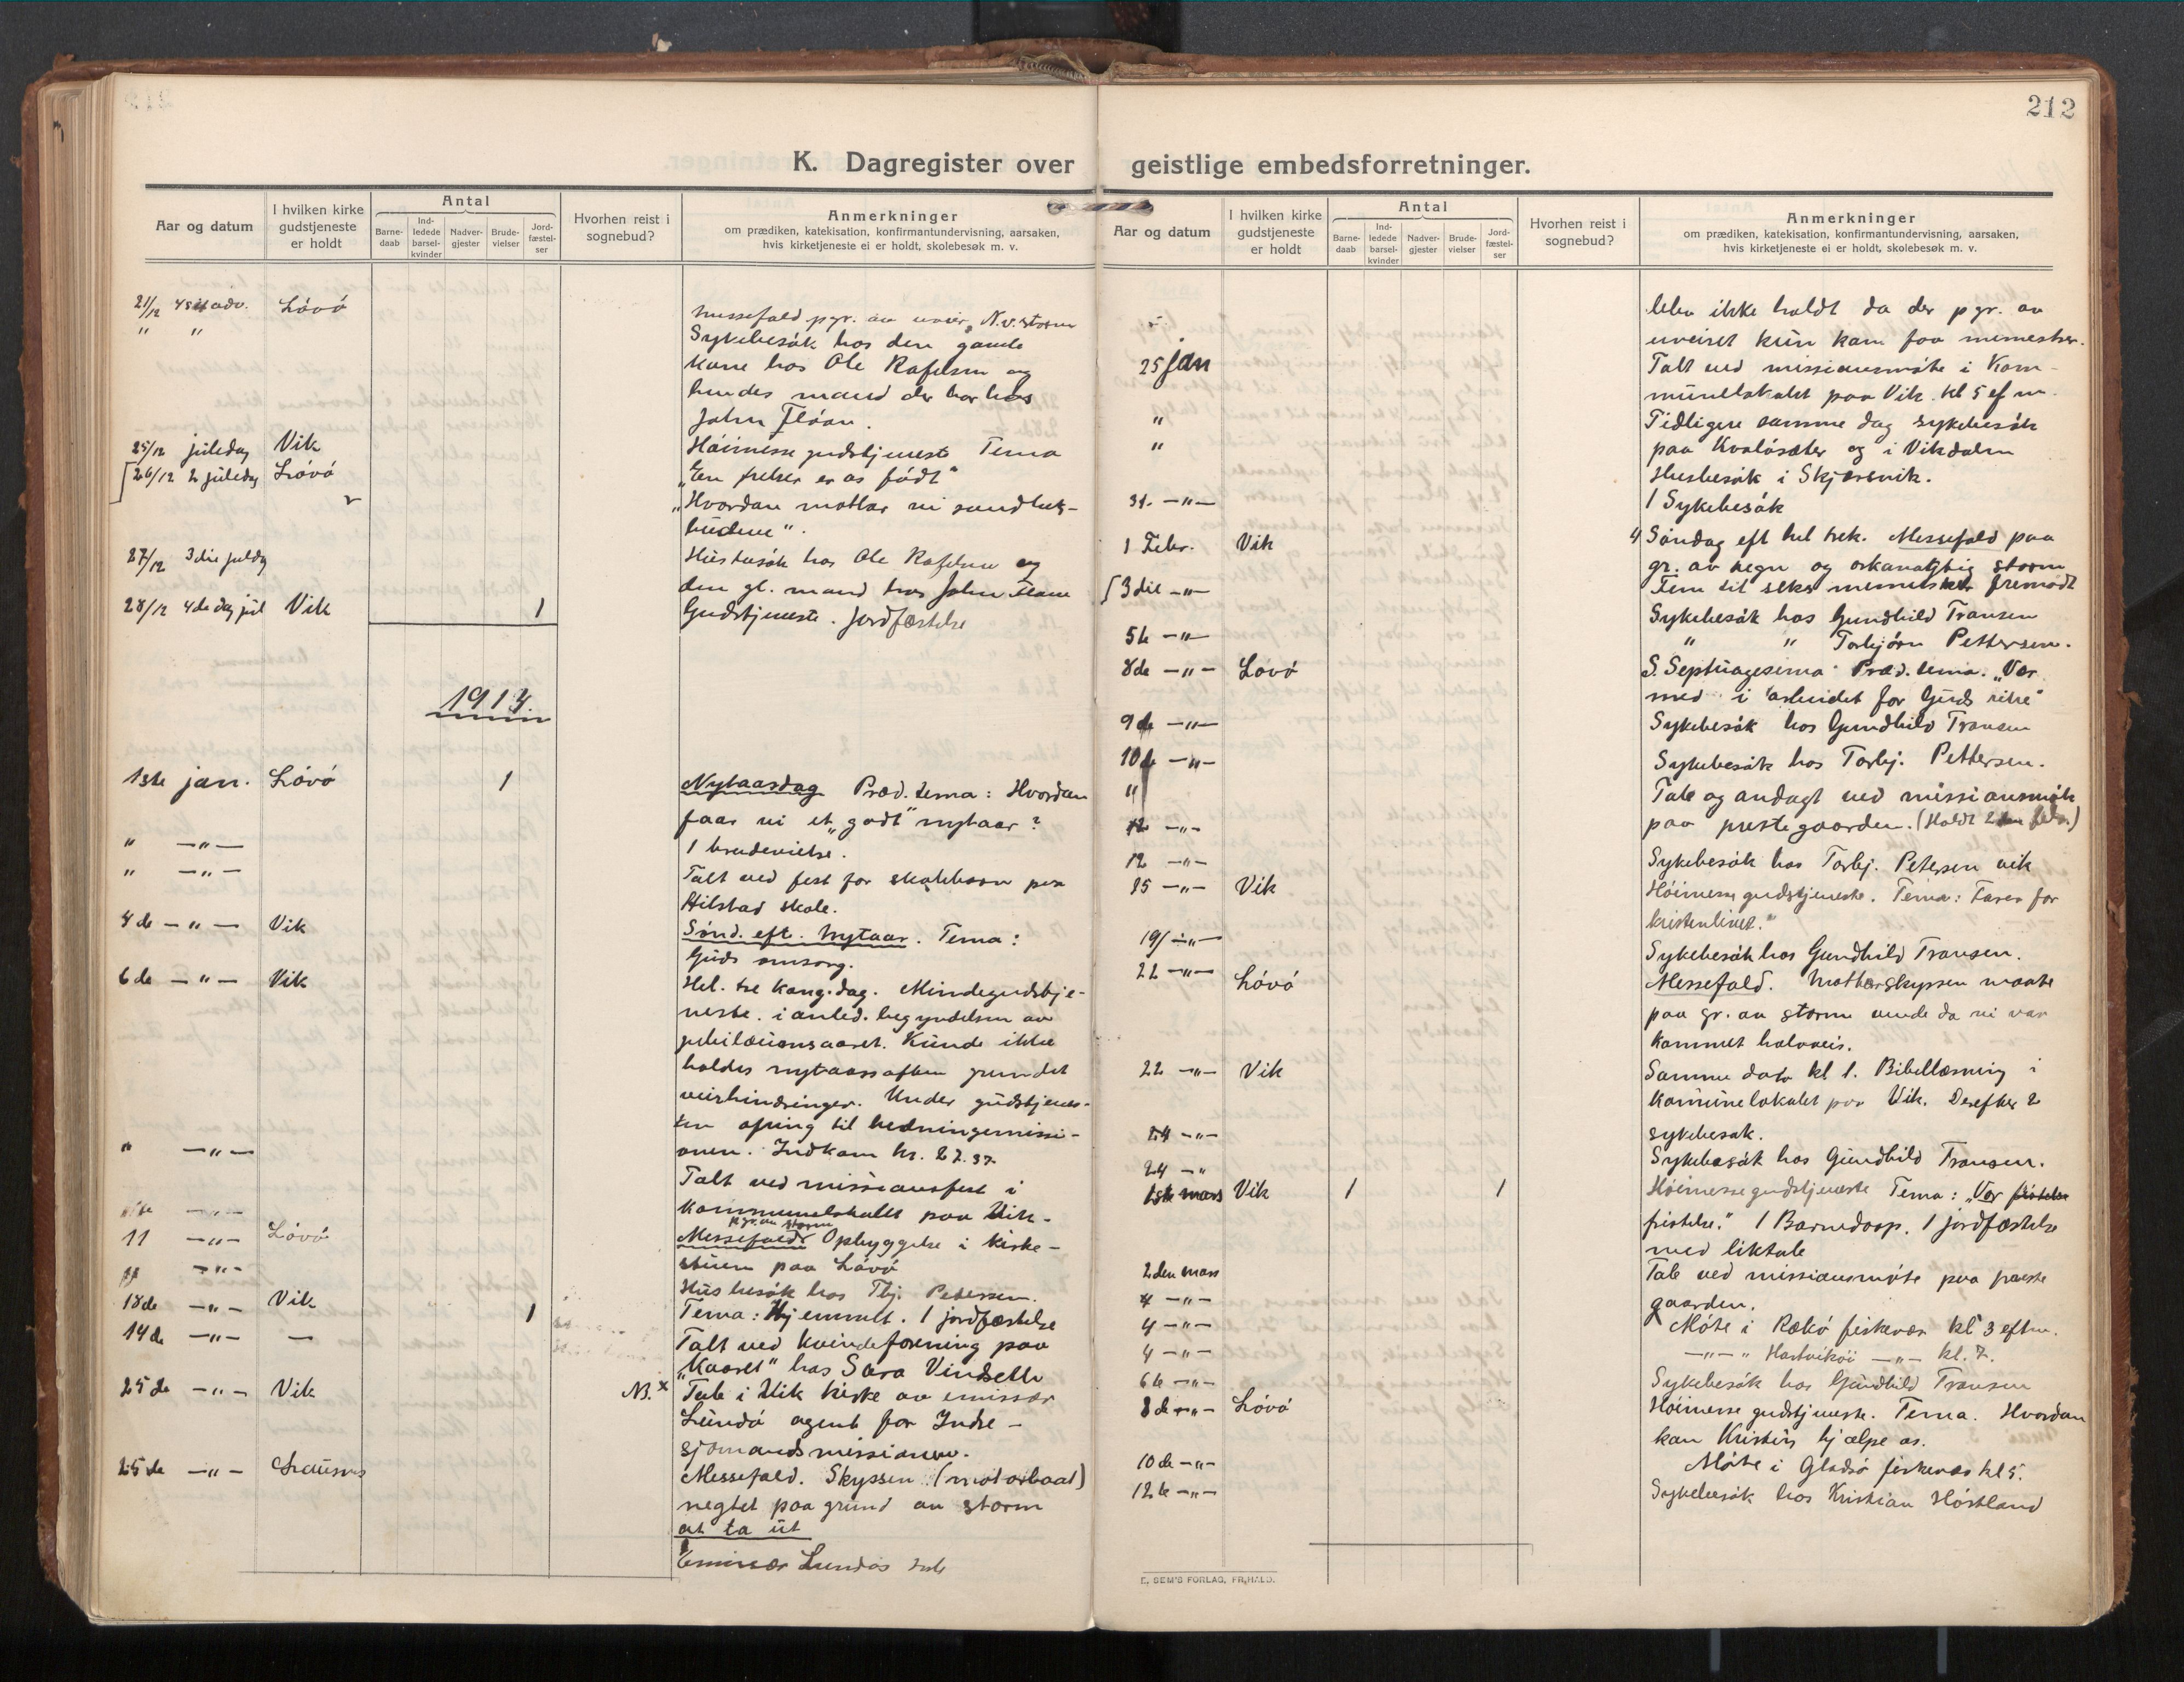 212
K. Dagregister over geistlige embedsforretninger.
Aar og datum
I hvilken kirke gudstjeneste er holdt
Antal
Barne-daab
Ind-ledede barsel-kvinder
Nadver-gjester
Brude-vielser
Jord-fæstel-ser
Hvorhen reist i sognebud?
Anmerkninger
om prædiken, katekisation, konfirmantundervisning, aarsaken,
hvis kirketjeneste ei er holdt, skolebesøk m. v.
21/12 4 s i adv. Løvø messefald pgr. av N.v. storm
" " Sykebesøk hos den gamle
kone hos Ole Rafelsen og
hendes mand der bor hos
John Fløan.
25/12 juledag Vik Høimesse gudstjeneste Tema
26/12 2 juledag Løvø „En frelser er os født"
„Hvordan mottar vi sendebudene".
27/12 3die juledg Husbesøk hos Ole Rafelsen og
den gl. mand hos John Fløan
28/12 4de dag jul Vik 1 Gudstjeneste. Jordfæstelse
1914.
1ste jan. Løvø 1 Nytaarsdag Præd. tema: Hvordan
faar vi et „godt" nytaar?
" —"— 1 brudevielse.
" —"— Talt ved fest for skolebarn paa
Hilstad skole.
4de —"— Vik Sønd. eft. Nytaar. Tema:
Guds omsorg.
6de —"— Vik Hel. tre kong. dag. Mindegudstje-
neste i anled. begyndelsen av
jubilæumsaaret. Kunde ikke
holdes nytaarsaften grundet
veirhindringer. Under gudstjenes-
ten ofring til hedningemissi-
onen. Indkom kr. 27.37
" —"— Talt ved missionsfest i
kommunelokalet paa Vik.
—"— pgr. av storm
11 —"— Løvø Messefald. Opbyggelse i kirke-
stuen paa Løvø
—"— Husbesøk hos Tbj. Petersen.
18de —"— Vik 1 Tema: Hjemmet. 1 jordfæstelse
14de —"— — Talt ved kvindeforening paa
„Kaaret" hos Sara Vindseth
25de —"— Vik NB. x Tale i Vik kirke av emissær
Lundø agent for Indre-
sjømandsmissionen.
25de —"— Messefald. Skyssen (motorbaat)
negtet paa grund av storm
at ta ut
Emissær Lundøs
Aar og datum
I hvilken kirke gudstjeneste er holdt
Antal
Barne-daab
Ind-ledede barsel-kvinder
Nadver-gjester
Brude-vielser
Jord-fæstel-ser
Hvorhen reist i sognebud?
Anmerkninger
om prædiken, katekisation, konfirmantundervisning, aarsaken,
hvis kirketjeneste ei er holdt, skolebesøk m. v.
blev ikke holdt da der pgr. av
uveiret kun kom faa mennesker.
25 jan Talt ved missionsmøte i Kom-
munelokalet paa Vik kl 5 efm.
" Tidligere samme dag sykebesøk
" paa Kvaløsæter og i Vikdalen
Husbesøk i Skjærsvik.
31. —"— 1 Sykebesøk
1 Febr. Vik 4 Søndag eft hel trek. Messefald paa
gr. av regn og orkanagtig storm
Fem til seks mennesker fremødt
3die —"— Sykebesøk hos Gundhild Transen
5te —"— " " Torbjørn Pettersen.
8de —"— Løvø S. Septuagesima Præd. tema. „Vær
med i arbeidet for Guds rike"
9de —"— Sykebesøk hos Gundhild Transen
10de —"— Sykebesøk hos Torbj. Pettersen.
" Tale og andagt ved missionsmøte
12 —"— paa prestegaarden. (Holdt 2den febr.)
12 —"— Sykebesøk hos Torbj. Petersen vik
15 —"— Vik Høimesse gudstjeneste. Tema: Farer for
kristenlivet."
19/ —"— Sykebesøk hos Gundhild Transen.
22 —"— Løvø Messefald. Motterskyssen maate
paa gr. av storm vende da vi var
kommet halvveis.
22 —"— Vik Samme dato kl 1. Bibellæsning i
kommunelokalet paa Vik. Derefter 2
24 —"— sykebesøk.
24 —" Sykebesøk hos Gundhild Transen.
1ste mars Vik 1 1 Høimessegudstjeneste Tema: „Vor
fristelse." 1 Barnedaap. 1 jordfæstelse
med liktale
2den mars Tale ved missionsmøte paa præste
4 —"— gaarden.
4 —"— Møte i Rækø fiskevær kl 3 eftm.
4 —"— —"— " Hartvikøi —"— kl. 7.
6te —"— Sykebesøk hos Gundhild Transen
8de —"— Løvø Høimesse gudstjeneste. Tema. Hvordan
kan Kristus hjælpe os.
10de —"— Møte i Gladsø fiskevær kl 5.
12te —"— Sykebesøk hos Kristian Hørtland
E. SEM'S FORLAG, FR.HALD.